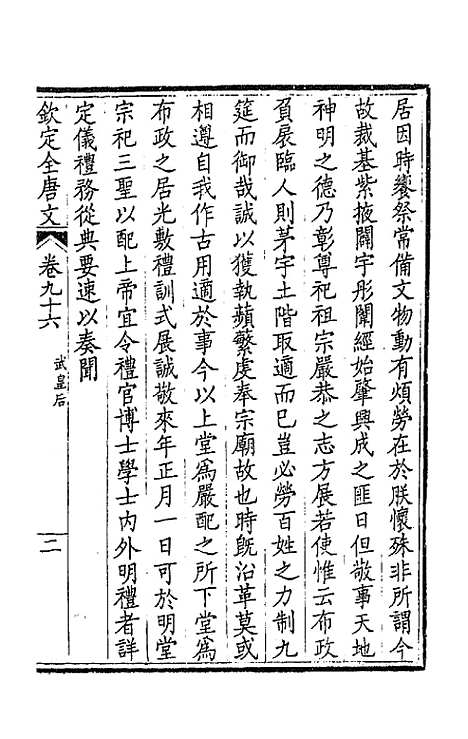 居因時饗祭常備文物動有煩勞在於朕懷殊非所謂今
故裁基紫掖闢宇彤闈經始肇興成之匪日但敬事天地
神明之德乃彰尊祀祖宗嚴恭之志方展若使惟云布政
負扆臨人則茅宇土階取適而已豈必勞百姓之力制九
筵而御哉誠以獲執蘋蘩虔奉宗廟故也時旣沿革莫或
相遵自我作古用適於事今以上堂爲嚴配之所下堂爲
布政之居光敷禮訓式展誠敬來年正月一日可於明堂
宗祀三聖以配上帝宜令禮官博士學士內外明禮者詳
定儀禮務從典要速以奏聞
欽定全唐文 卷九十六 武皇后 二